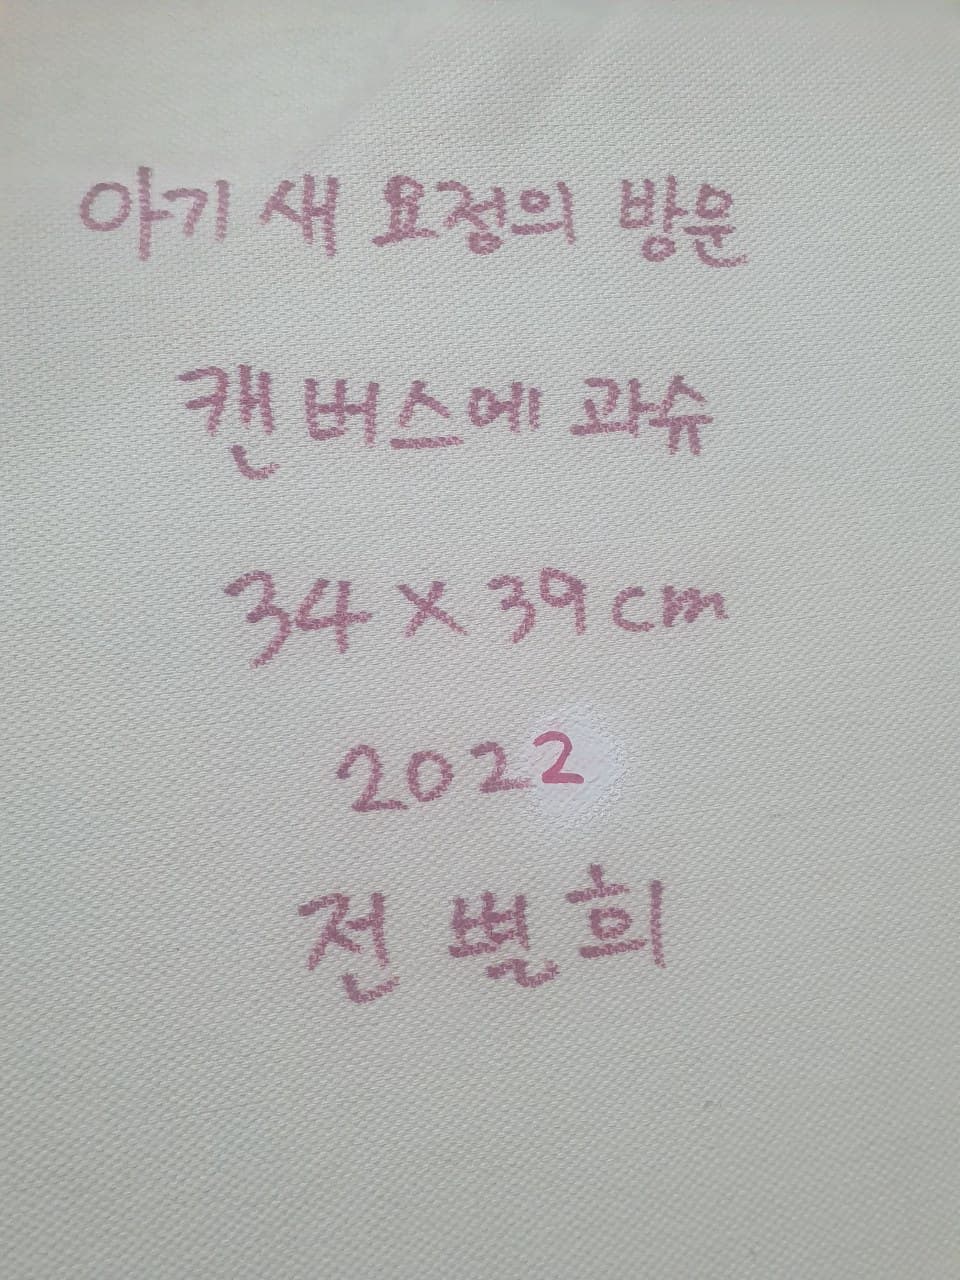 아기 새 요정의 방문
캔버스에 과슈
34 x 39 cm
2022
전별희